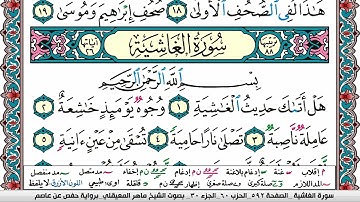 هَٰذَا لَفِى ٱلصُّحُفِ ٱلْأُولَىٰ ١٨ صُحُفِ إِبْرَٰهِيمَ وَمُوسَىٰ ١٩
ترتيبها ٨٨ سُورَةُ الغَاشِيَةِ آياتها ٢٦
بِسْمِ ٱللَّهِ ٱلرَّحْمَٰنِ ٱلرَّحِيمِ
هَلْ أَتَىٰكَ حَدِيثُ ٱلْغَٰشِيَةِ ١ وُجُوهٌ يَوْمَئِذٍ خَٰشِعَةٌ ٢
عَامِلَةٌ نَّاصِبَةٌ ٣ تَصْلَىٰ نَارًا حَامِيَةً ٤ تُسْقَىٰ مِنْ عَيْنٍ ءَانِيَةٍ ٥
سورة الغاشية . الصفحة ٥٩٢ . الحزب ٦٠ . الجزء ٣٠ . بصوت الشيخ ماهر المعيقلي . برواية حفص عن عاصم